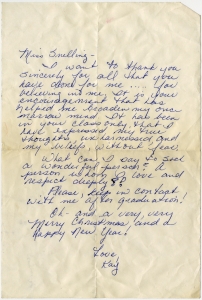 Miss Snelling -
I want to thank you
sincerely for all that you
have done for me .... You
believing in me. It is your
encouragement that has
helped me broaden my once
narrow mind. It has been
in your class only that I
have expressed my true
thoughts, and
my beliefs, without fear.
What can I say to such
a wonderful person? A
person whom I love and
respect deeply?
Please, keep in contact
with me after graduation!
Oh - and a very, very
Merry Christmas and a
Happy New Year!
Love,
Kay